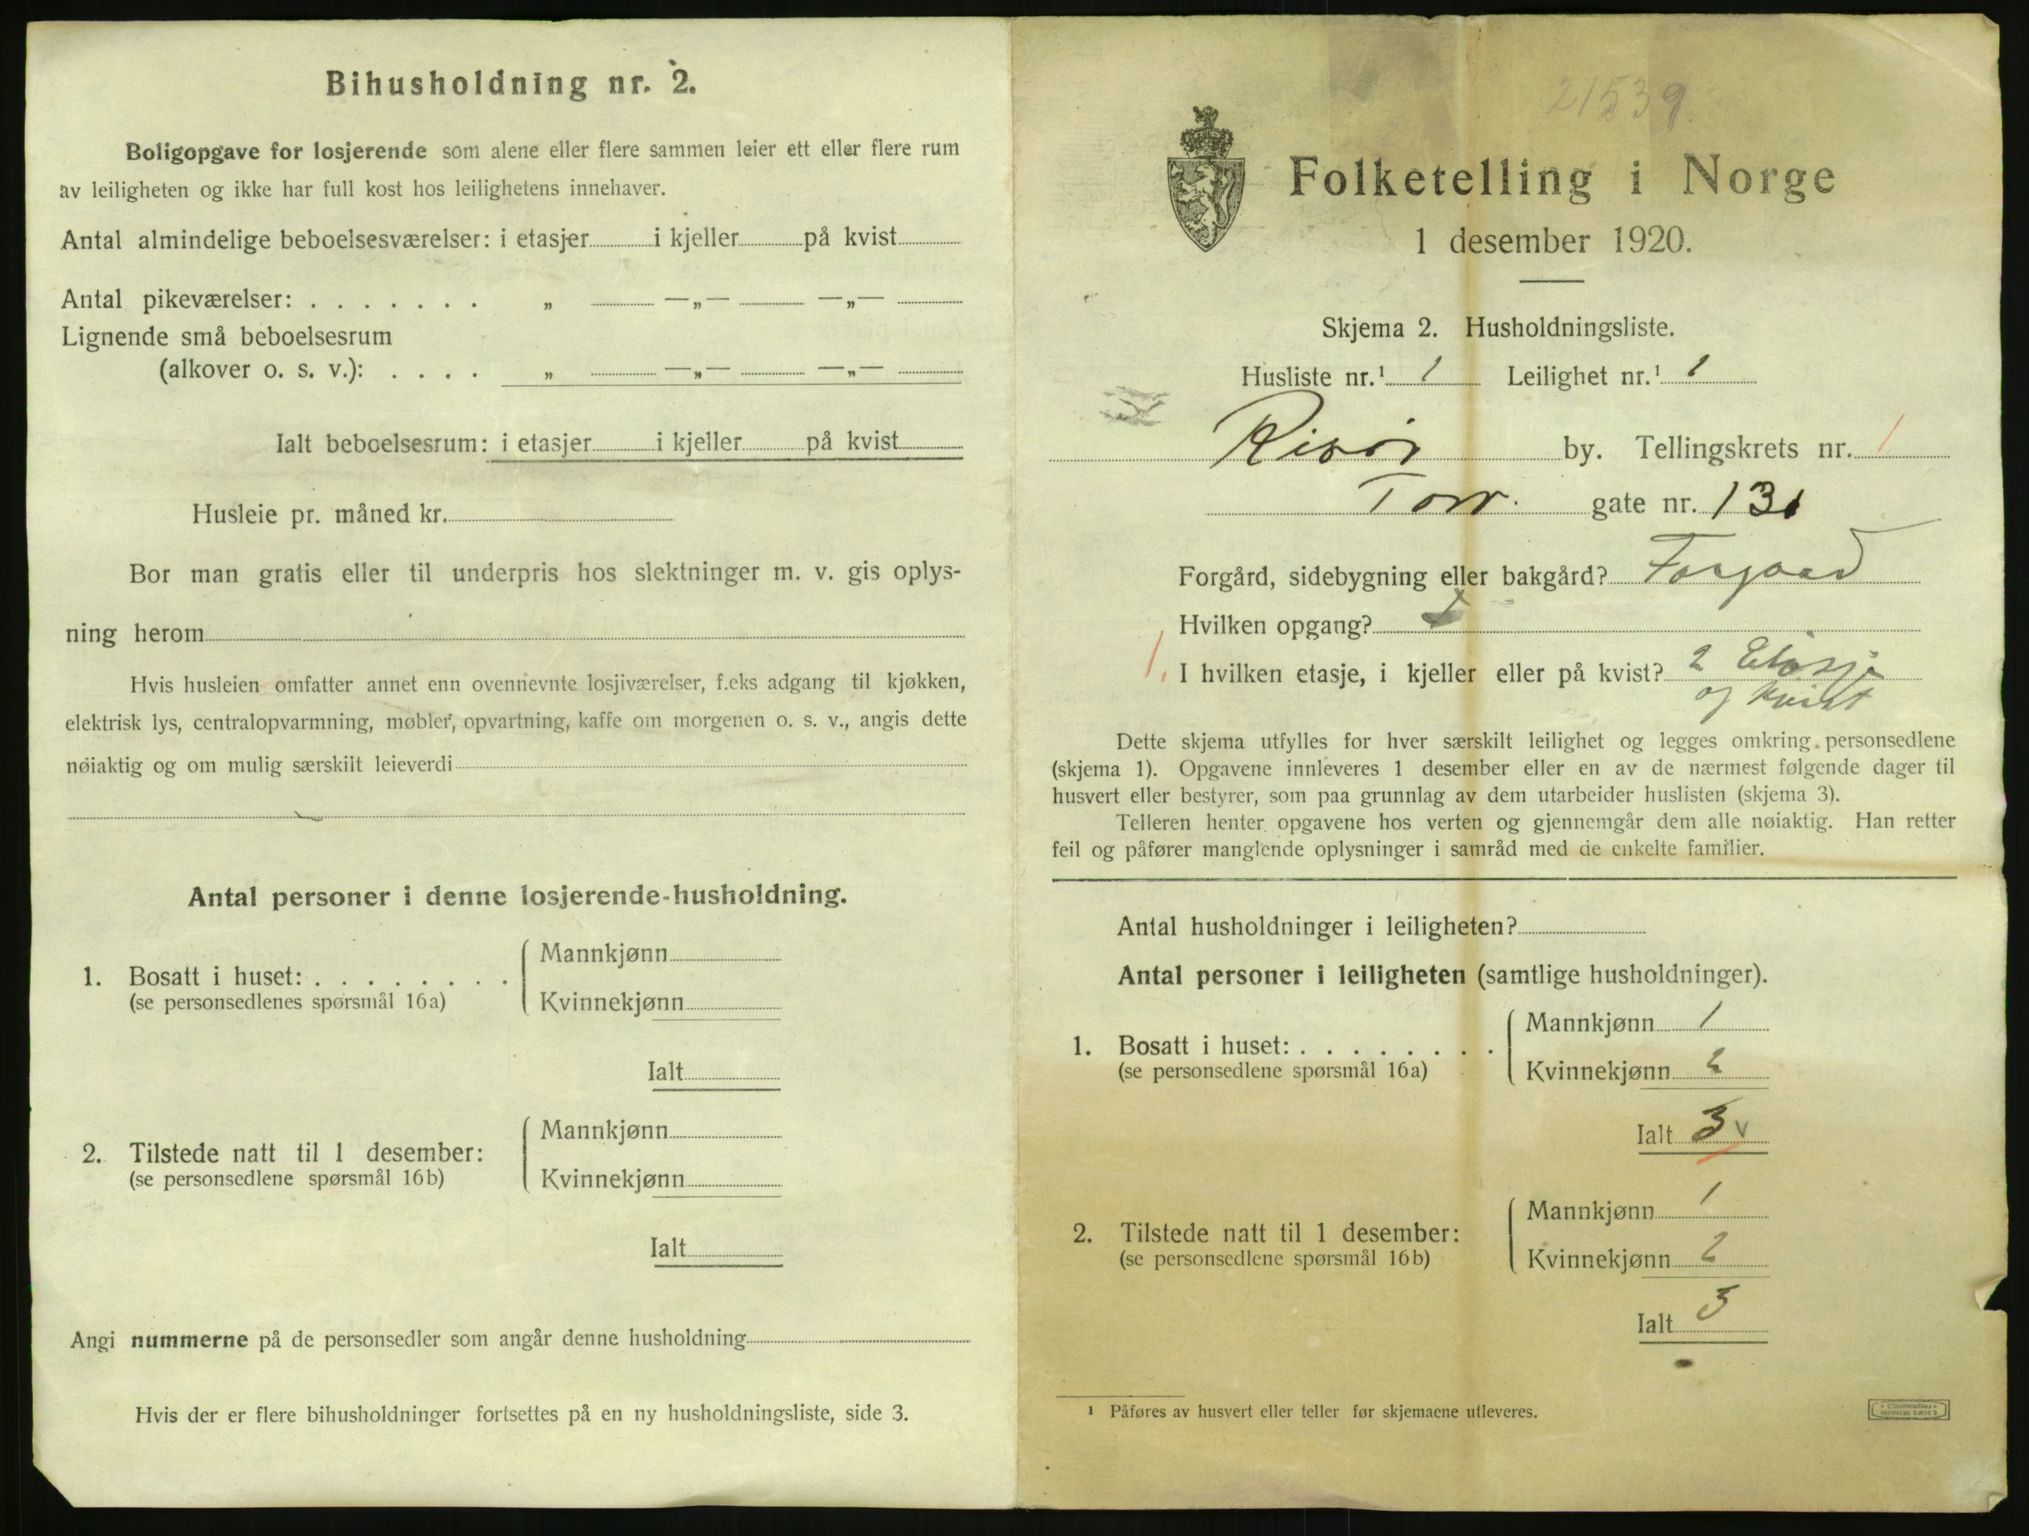 Bihusholdning nr. 2.
Boligopgave for losjerende som alene eller flere sammen leier ett eller flere rum
av leiligheten og ikke har full kost hos leilighetens innehaver.
Antal almindelige beboelsesværelser: i etasjer i kjeller på kvist
Antal pikeværelser: . . . . . . . „ —„— —„—
Lignende små beboelsesrum
(alkover o. s. v.): . . . . „ —„— —„—
Ialt beboelsesrum: i etasjer i kjeller på kvist
Husleie pr. måned kr.
Bor man gratis eller til underpris hos slektninger m. v. gis oplys-
ning herom
Hvis husleien omfatter annet enn ovennevnte losjiværelser, f.eks adgang til kjøkken,
elektrisk lys, centralopvarmning, møbler, opvartning, kaffe om morgenen o. s. v., angis dette
nøiaktig og om mulig særskilt leieverdi
Antal personer i denne losjerende-husholdning.
1. Bosatt i huset: . . . . . . . . Mannkjønn
(se personsedlenes spørsmål 16a) Kvinnekjønn
Ialt
2. Tilstede natt til 1 desember: Mannkjønn
(se personsedlene spørsmål 16b) Kvinnekjønn
Ialt
Angi nummerne på de personsedler som angår denne husholdning
Hvis der er flere bihusholdninger fortsettes på en ny husholdningsliste, side 3.
21539.
Folketelling i Norge
1 desember 1920.
Skjema 2. Husholdningsliste.
Husliste nr.¹ 1 Leilighet nr.¹ 1
Risør by. Tellingskrets nr. 1
Torv. gate nr. 131
Forgård, sidebygning eller bakgård? Forgaard
Hvilken opgang?
1. I hvilken etasje, i kjeller eller på kvist? 2 Etasje
og Kvist
Dette skjema utfylles for hver særskilt leilighet og legges omkring personsedlene
(skjema 1). Opgavene innleveres 1 desember eller en av de nærmest følgende dager til
husvert eller bestyrer, som paa grunnlag av dem utarbeider huslisten (skjema 3).
Telleren henter opgavene hos verten og gjennemgår dem alle nøiaktig. Han retter
feil og påfører manglende oplysninger i samråd med de enkelte familier.
Antal husholdninger i leiligheten?
Antal personer i leiligheten (samtlige husholdninger).
1. Bosatt i huset: . . . . . . . . Mannkjønn 1
(se personsedlene spørsmål 16a) Kvinnekjønn 2
Ialt 3 v
2. Tilstede natt til 1 desember: Mannkjønn 1
(se personsedlene spørsmål 16b) Kvinnekjønn 2
Ialt 3
¹ Påføres av husvert eller teller før skjemaene utleveres.